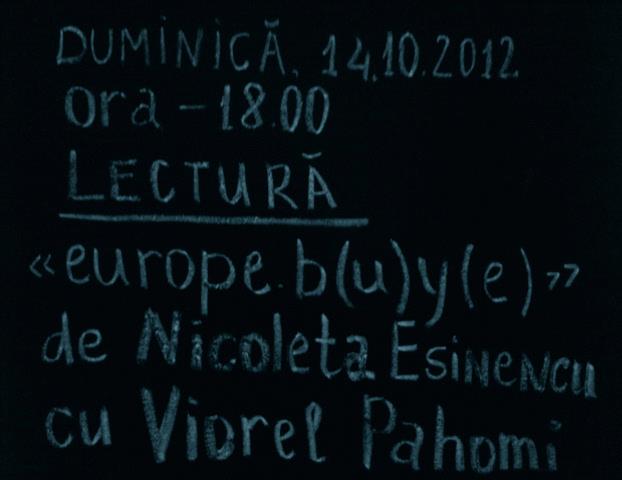 DUMINICĂ, 14.10.2012
ora – 18.00
LECTURĂ
«europe.b(u)y(e)”
de Nicoleta Esinencu
cu Viorel Pahomi